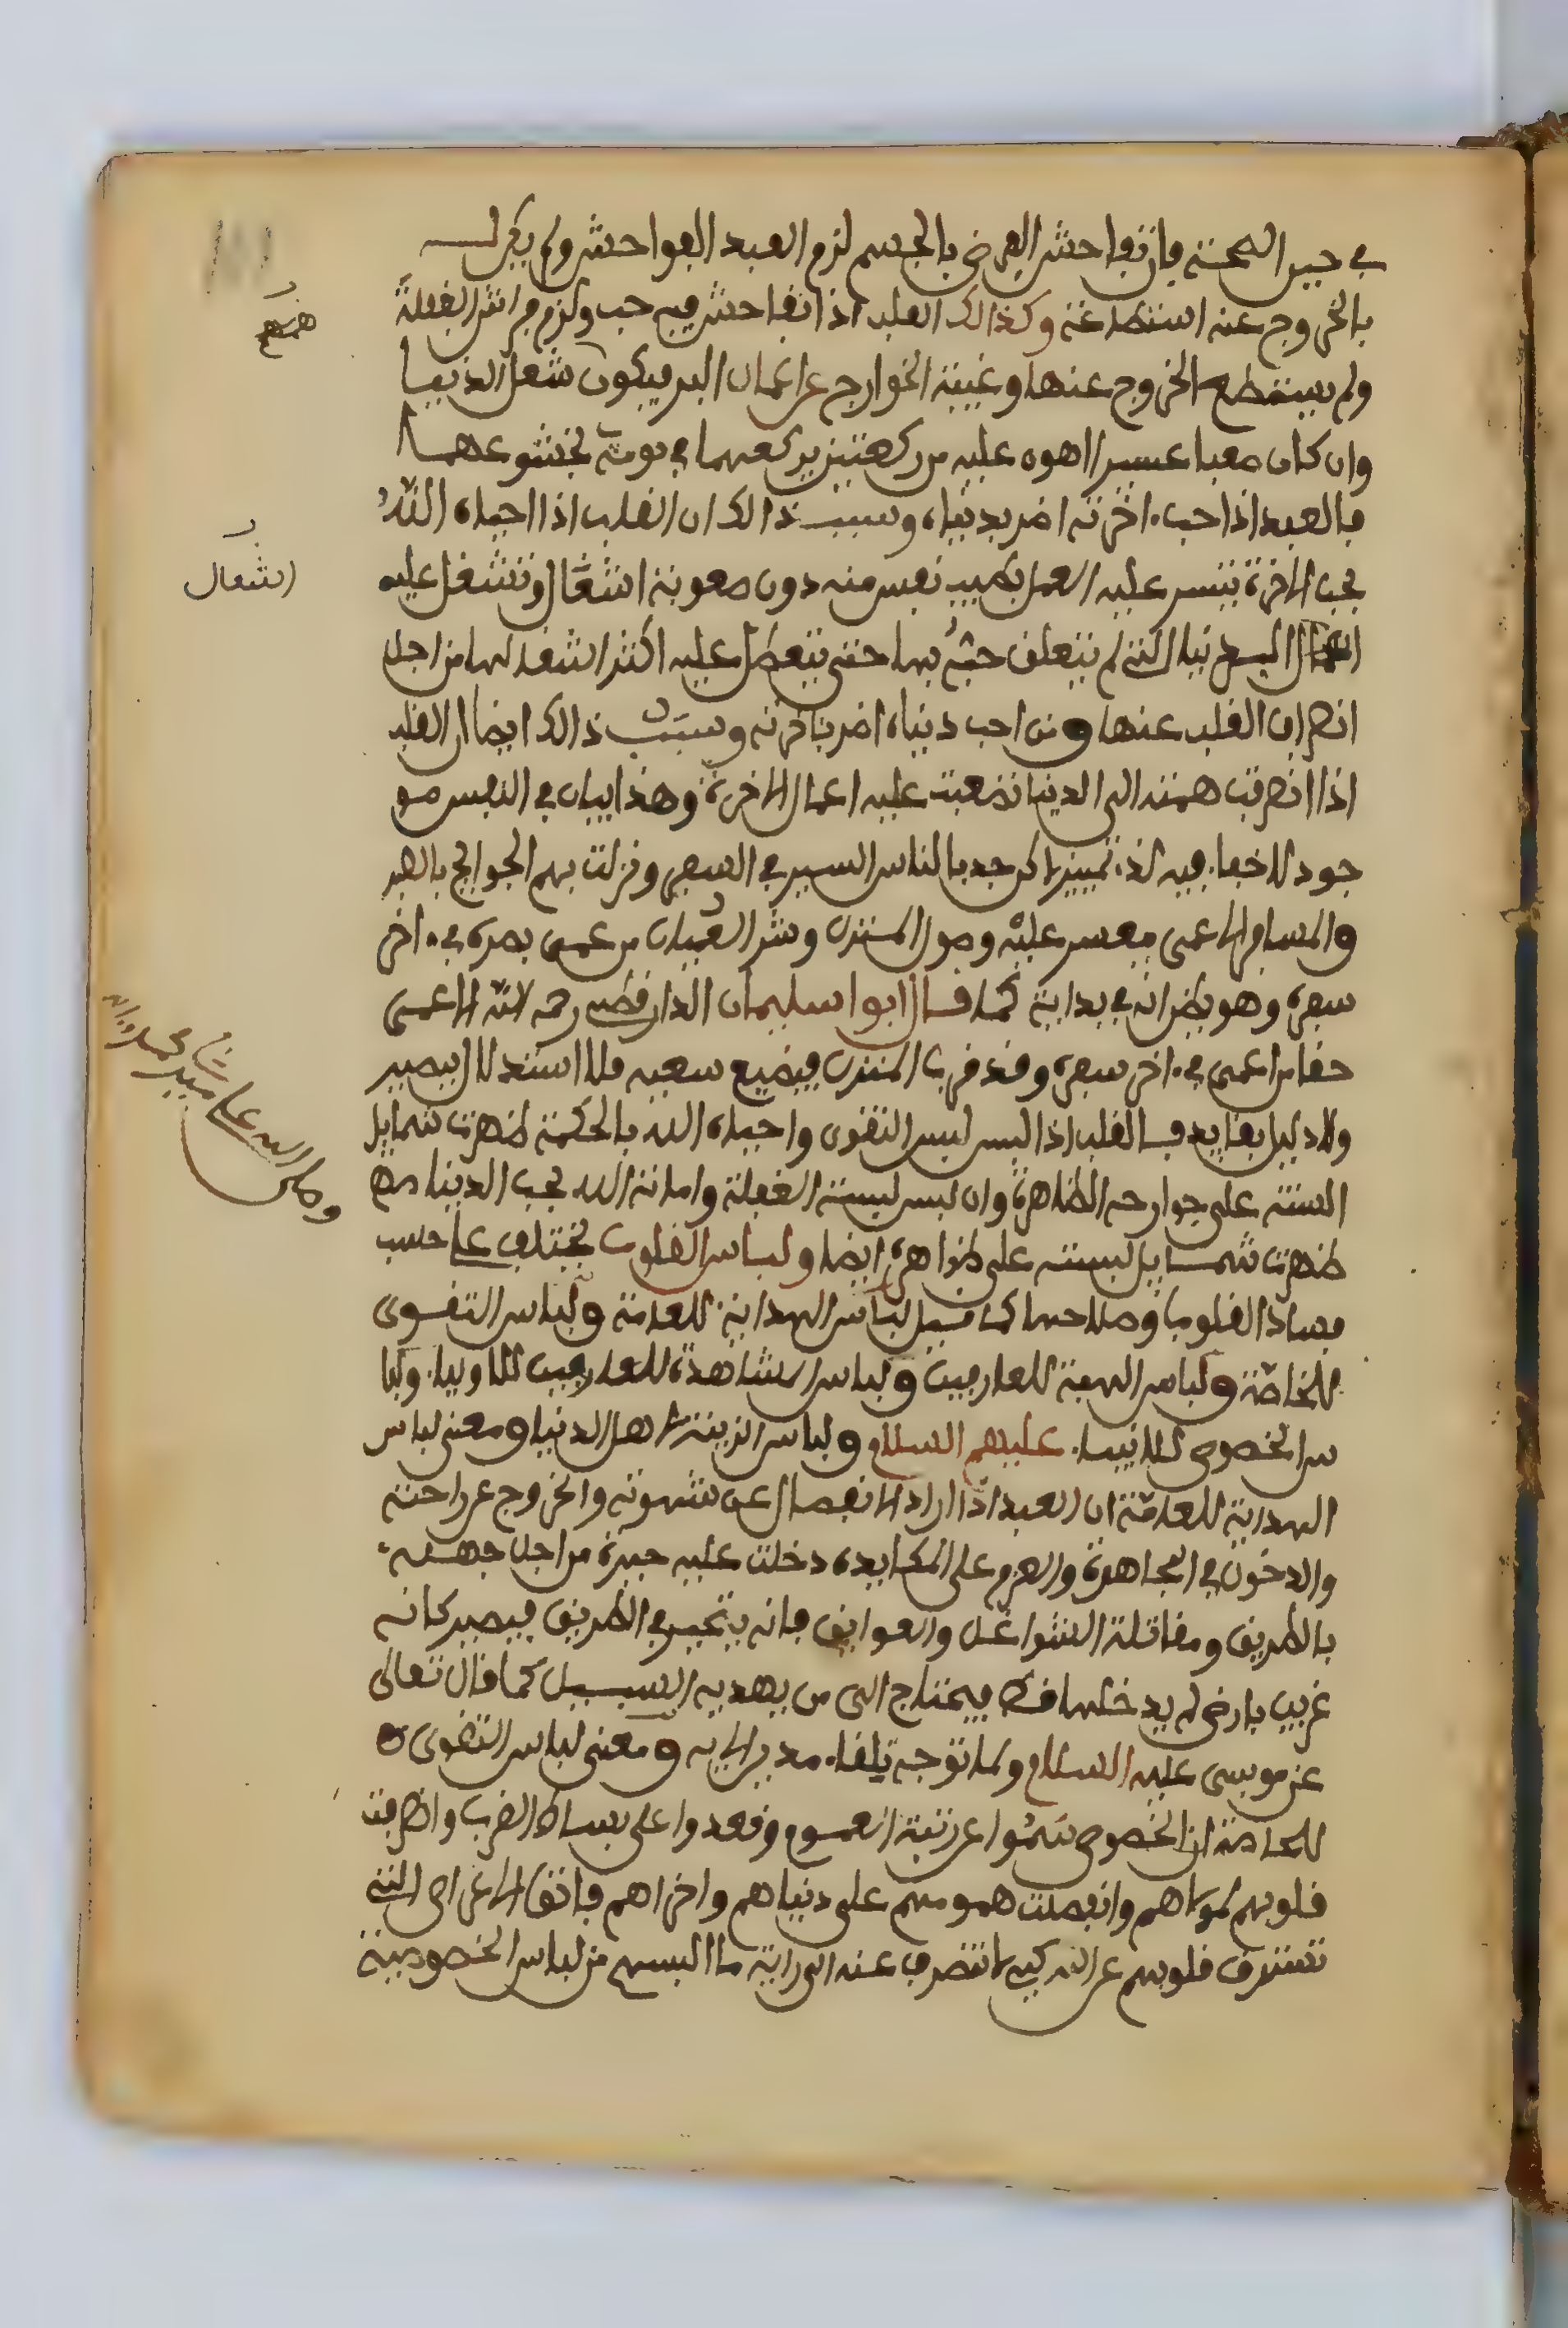 في حيز الصحة فإن تفاحش المرض بالجسم لزم العبد الفواحش ولم يكن له
بالخروج عنه استطاعة وكذالك القلب اذا تفاحش فيه حب ولزم فراش الغفلة
ولم يستطع الخروج عنها وغيبة الخوارج عن اعمال البر فيكون شغل الدنيا
وان كان صعبا عسيرا اهون عليه من ركعتين يركعهما في يومه بخشوعهما
فالعبد اذا احب ءاخرته اضر بدنياه وسبب ذالك ان القلب اذا احياه الله
بحب الاخرة تيسر عليه العمل بطيب نفس منه دون صعوبة اشغال وتشغل عليه
الدنيا التي لم يتعلق حبه بها حتى يتعطل عليه اكثر اشغالها من اجل
انصراف القلب عنها ومن احب دنياه اضر بآخرته وسبب ذالك ايضا ان القلب
اذا انصرفت همته الى الدنيا تصعبت عليه اعمال الاخرة وهذا بيان في النفس مو
جود لا خفاء فيه لذي تمييز كرجد بالناس السير في السفر ونزلت بهم الحوايج
والمسافر الاعمى يعسر عليه وصول المنزل وشر العميان من عمي بصره في ءاخر
سفره وهو بصر انه في بدايته كما قال ابو اسليمان الدار رحمه الله الاعمى
حقا من اعمي في ءاخر سفره وقد قرب المنزل فيضيع سعيه فلا استدلال يبصير
ولا دليل بقايد فالقلب اذا لبس لبس التقوى واحياه الله بالحكمة ظهرت شمايل
السنة على جوارحه الظاهرة وان لبس لبسة الغفلة واماته الله بحب الدنيا
ظهرت شمايل لبسته على ظواهره ايضا ولباس القلوب يختلف على حسب
فساد القلوب وصلاحها كما قيل لباس الهداية للعامة ولباس التقوى
للخاصة ولباس الهيبة للعارفين ولباس المشاهدة للاولياء ولبا
س الخصوص للانبياء عليهم السلام ولباس الزينة لاهل الدنيا ومعنى لباس
الهداية للعامة ان العبد اذا اراد الانفصال عن شهوته والخروج عن راحته
والدخول في المجاهدة والعزم على المكايدة دخلت عليه حيرة من اجل جهله
بالطريق ومقاتلة الشواغل والعوايق فانه يتحير في الطريق فيصير كانه
غريب بارض لم يدخلها قط فيحتاج الى من يهديه السبيل كما قال تعالى
عن موسى عليه السلام ولما توجه تلقاء مدين الاية ومعنى لباس التقوى
للخاصة ان الخصوص سموا عن رتبة العموم وقعدوا على بساط القرب وانصرفت
قلوبهم لمولاهم وانفصلت همومهم على دنياهم واخراهم فاتقا الاعراض التي
تسترق قلوبهم عن الله كي لا تنصرف عنه الى راية ما البسهم من لباس الخصوصية
اشغال
وصلى الله على سيدنا محمد